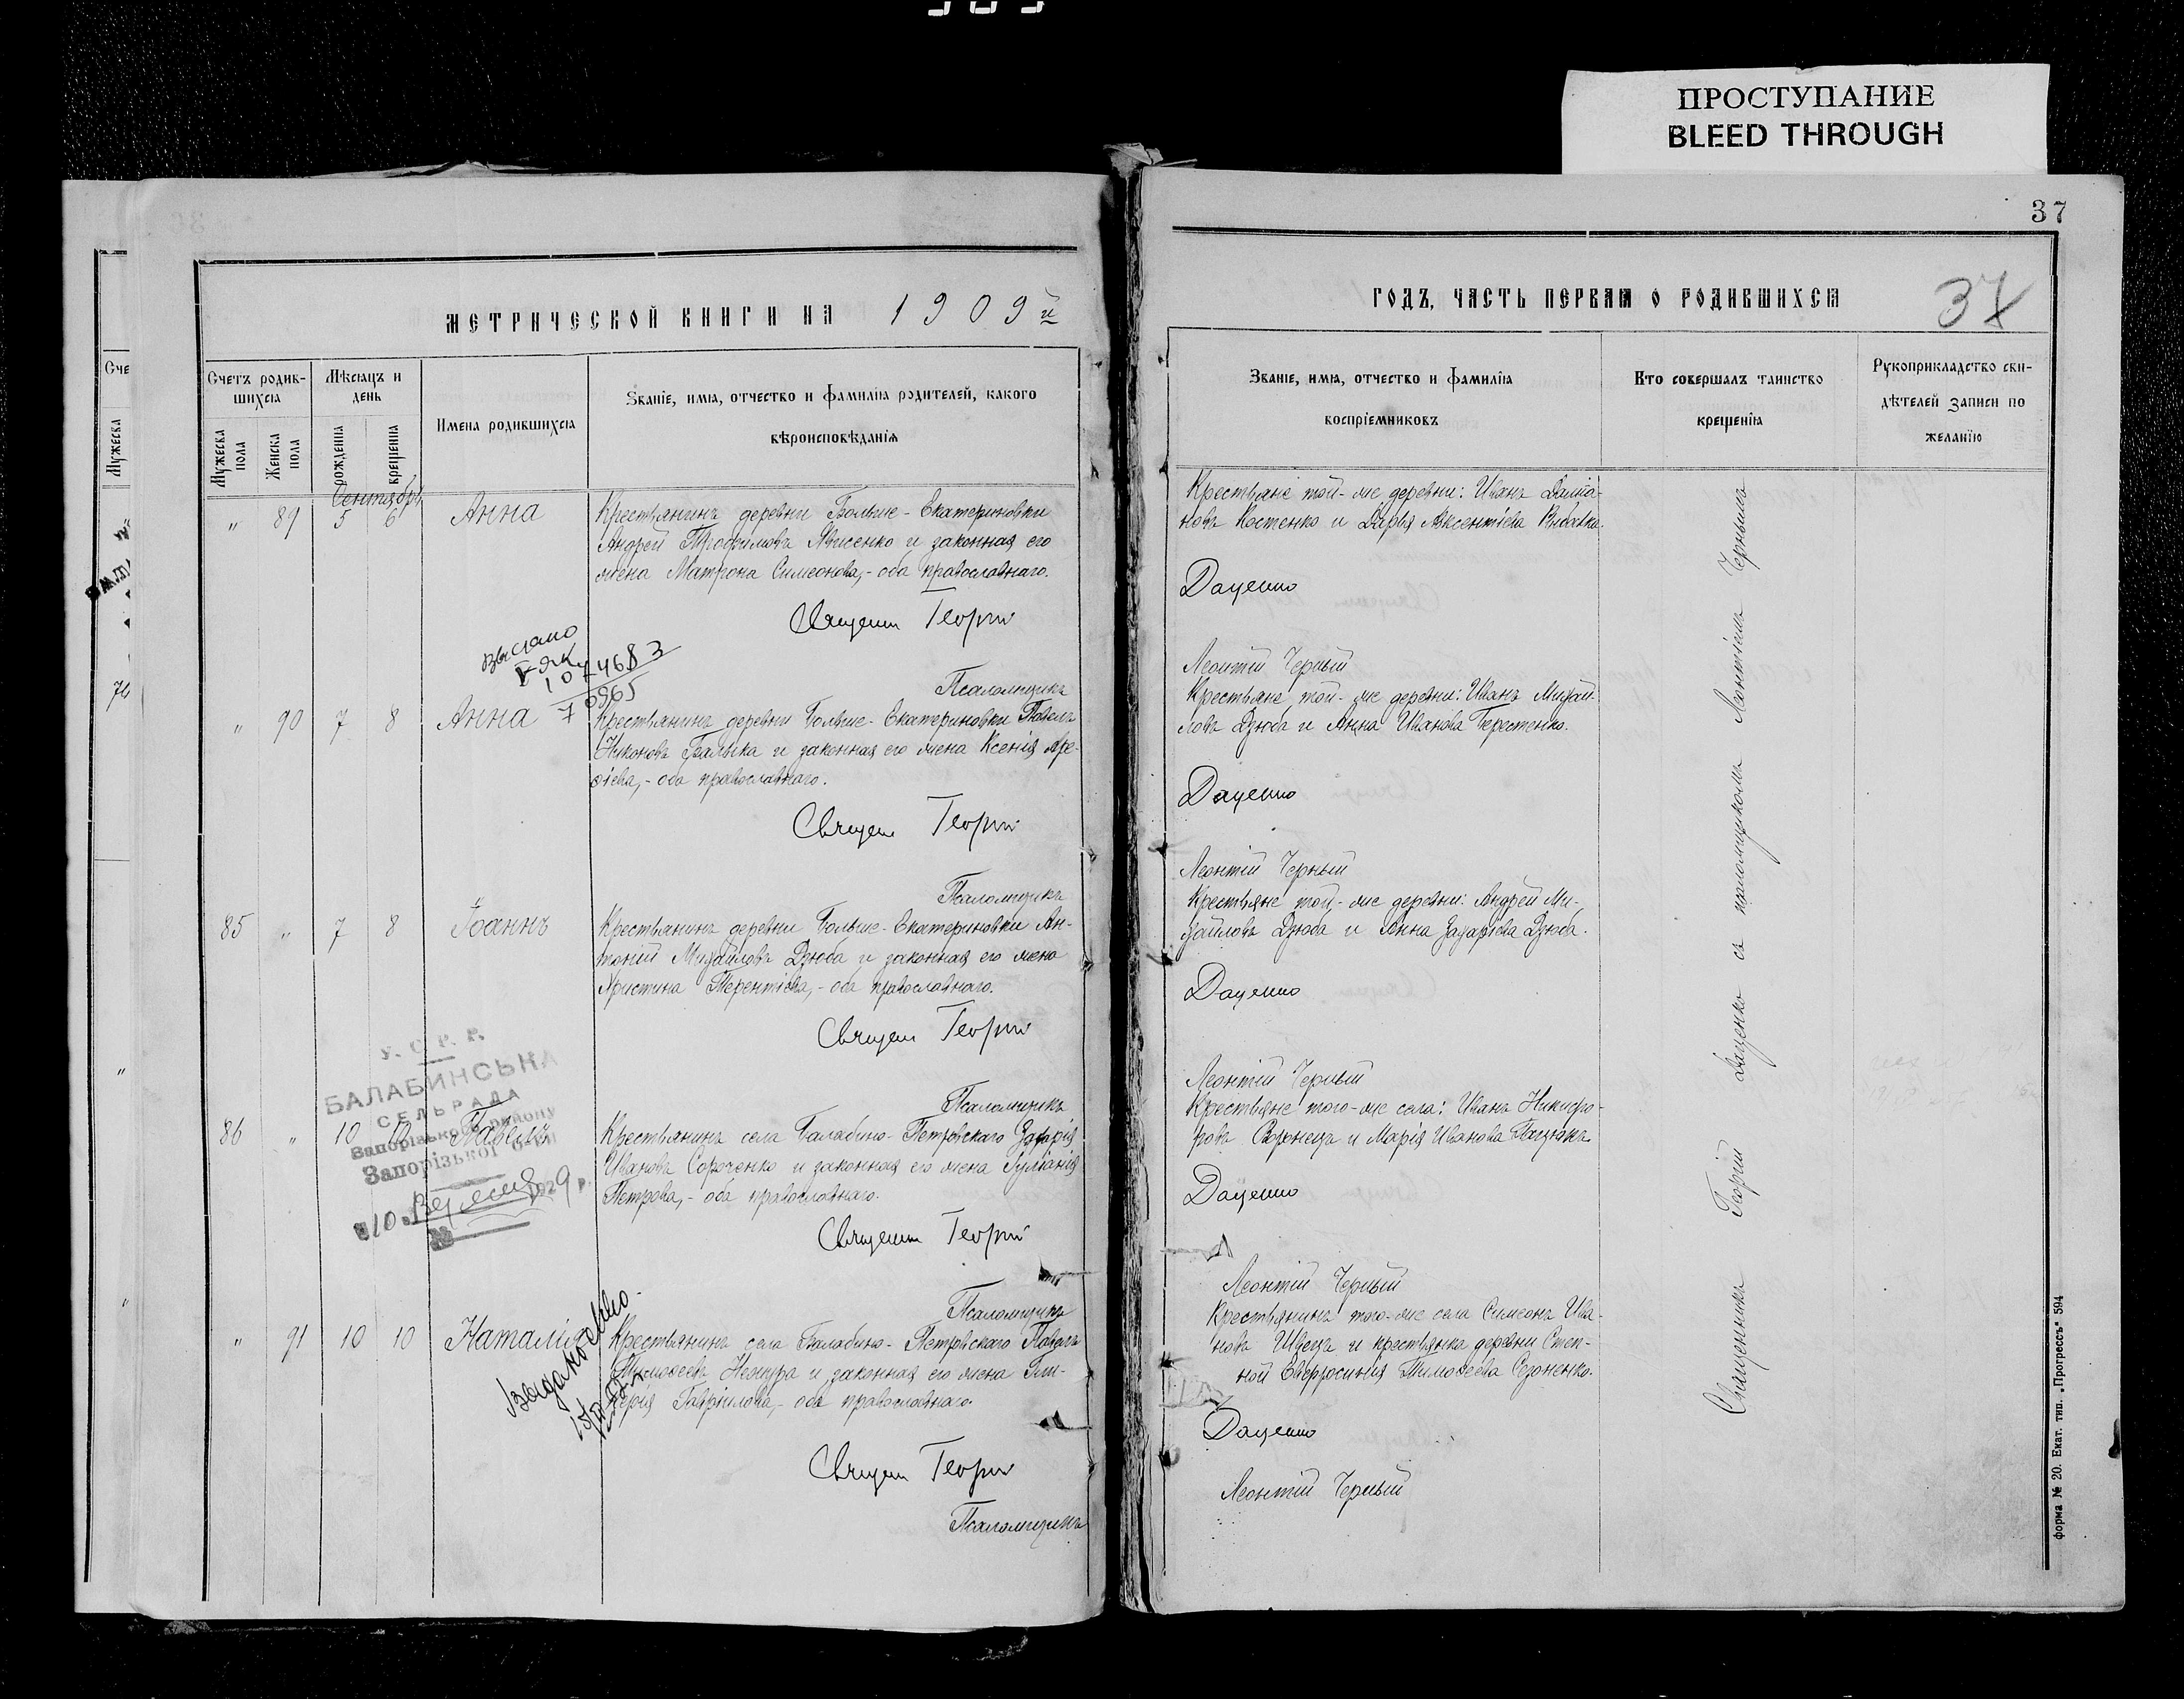 ПРОСТУПАНИЕ
BLEED THROUGH
МЕТРИЧЕСКОЙ КНИГИ НА 1909й
Счетъ родив-
шихся
Мѣсяцъ и
день
Мужеска
пола
Женска
пола
рожденія
крещенія
Имена родившихся
Званіе, имя, отчество и фамилія родителей, какого
вѣроисповѣданія
Сентябрь
" 89 5 6 Анна
Крестьянинъ деревни Больше-Екатериновки
Андрей Трофимовъ Лысенко и законная его
жена Матрона Симеонова,- оба православнаго.
Священ Георгій
Псаломщикъ
" 90 7 8 Анна
Крестьянинъ деревни Больше-Екатериновки Павелъ
Никоновъ и законная его жена Ксенія Аре-
ѳіева,- оба православнаго.
Священ Георгій
Псаломщикъ
85 " 7 8 Іоаннъ
Крестьянинъ деревни Больше-Екатериновки Ан-
тоній Михайловъ Дзюба и законная его жена
Христина Терентіева,- оба православнаго.
Священ Георгій
У. С. Р. Р.
БАЛАБИНСЬКА
СЕЛЬРАДА
Запорізького району
Запорізької
10
№
Псаломщикъ
86 " 10
Крестьянинъ села Балабино-Петровскаго Захарія
Ивановъ Сороченко и законная его жена Іуліанія
Петрова,- оба православнаго.
Священ Георгій
Псаломщикъ
" 91 10 10 Наталія
Крестьянинъ села Балабино-Петровскаго Павелъ
Тимоѳеевъ и законная его жена Гли-
керія Гавріилова,- оба православнаго.
Священ Георгій
Псаломщикъ
37
ГОДЪ, ЧАСТЬ ПЕРВАЯ О РОДИВШИХСЯ
37
Званіе, имя, отчество и фамилія
воспріемниковъ
Кто совершалъ таинство
крещенія
Рукоприкладство сви-
дѣтелей записи по
желанію
Крестьяне той-же деревни: Иванъ Даміа-
новъ Костенко и Дарья Авксентіева
Даценко
Леонтій Черный
Крестьяне той-же деревни: Иванъ Михай-
ловъ Дзюба и Анна Иванова Берестенко.
Даценко
Леонтій Черный
Крестьяне той-же деревни: Андрей Ми-
хайловъ Дзюба и Анна Захаріева Дзюба.
Даценко
Леонтій Черный
Крестьяне того-же села: Иванъ Никифо-
ровъ Воронецъ и Марія Иванова
Даценко
Леонтій Черный
Крестьянинъ того-же села Симеонъ Ива-
новъ Швецъ и крестьянка деревни Степ-
ной Евфросинія Тимоѳеева
Даценко
Леонтій Черный
Священникъ Георгій Даценко съ псаломщикомъ Леонтіемъ Чернымъ
форма № 20. Екат. тип. „Прогрессъ" 594